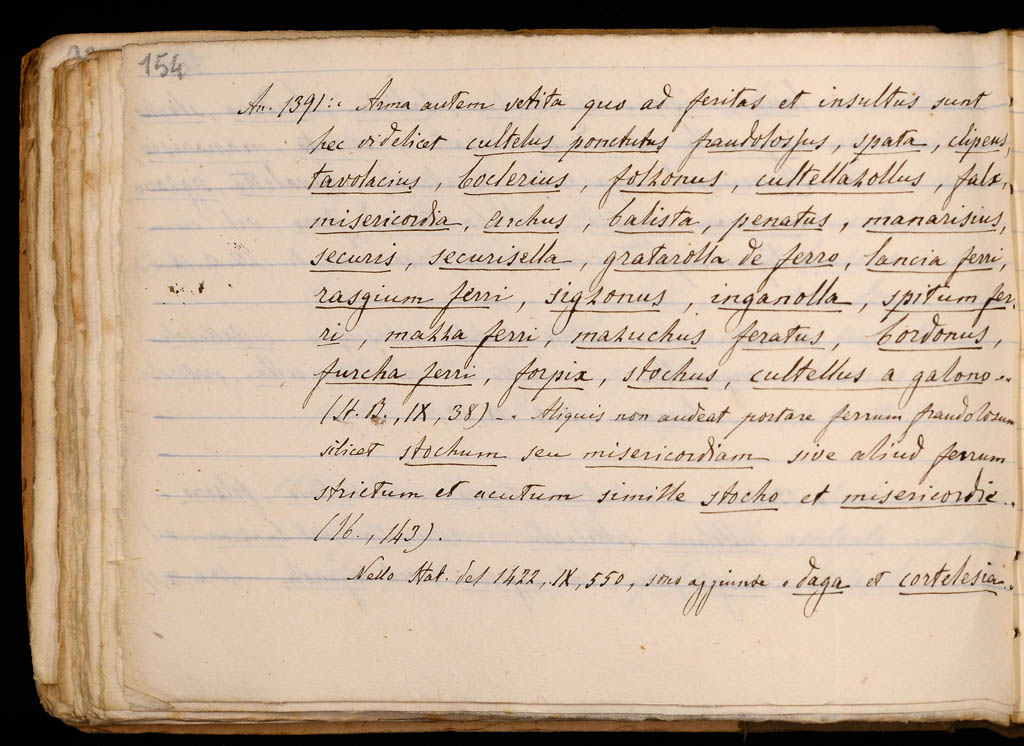 154
An. 1391: "Arma autem vetita quo ad feritas et insultus sunt
hec videlicet cultelus ponctutus fraudolossus, spata, clipeus,
tavolacius, boclerius, folzonus, cultellazollus, falx,
misericordia, archus, balista, penatus, manarisius,
securis, securisella, gratarolla de ferro, lancia ferri,
rasgium ferri, sigzonus, inganolla, spitum fer-
ri, mazza ferri, mazuchus feratus, bordonus,
furcha ferri, forpix, stochus, cultellus a galono"
(St. B., IX, 38) - "Aliquis non audeat portare ferrum fraudolosum
silicet stochum seu misericordiam sive aliud ferrum
strictum et acutum simille stocho et misericordie"
(Ib., 143).
Nello Stat. del 1422, IX, 550, sono aggiunte "daga et cortelesia"